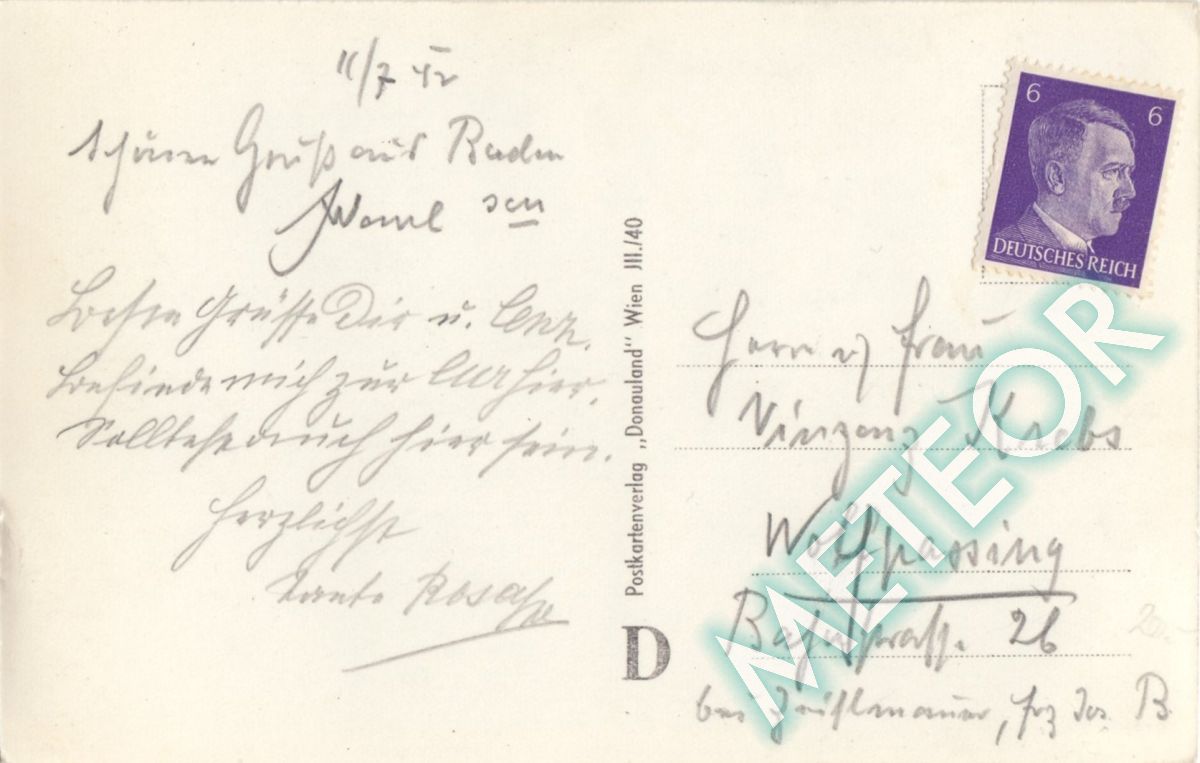 11/7 42
schönen Gruß aus Baden
sen
Besten Grüsse Dir u.
befinde mich zur Cur hier.
Solltest auch hier sein.
Herzlichst
Tante Rosa
Postkartenverlag „Donauland" Wien III./40
D
6 6
DEUTSCHES REICH
Herrn u Frau
Vinzenz Krebs
Wolfpassing
Bahnstrasse 26
bei
METEOR